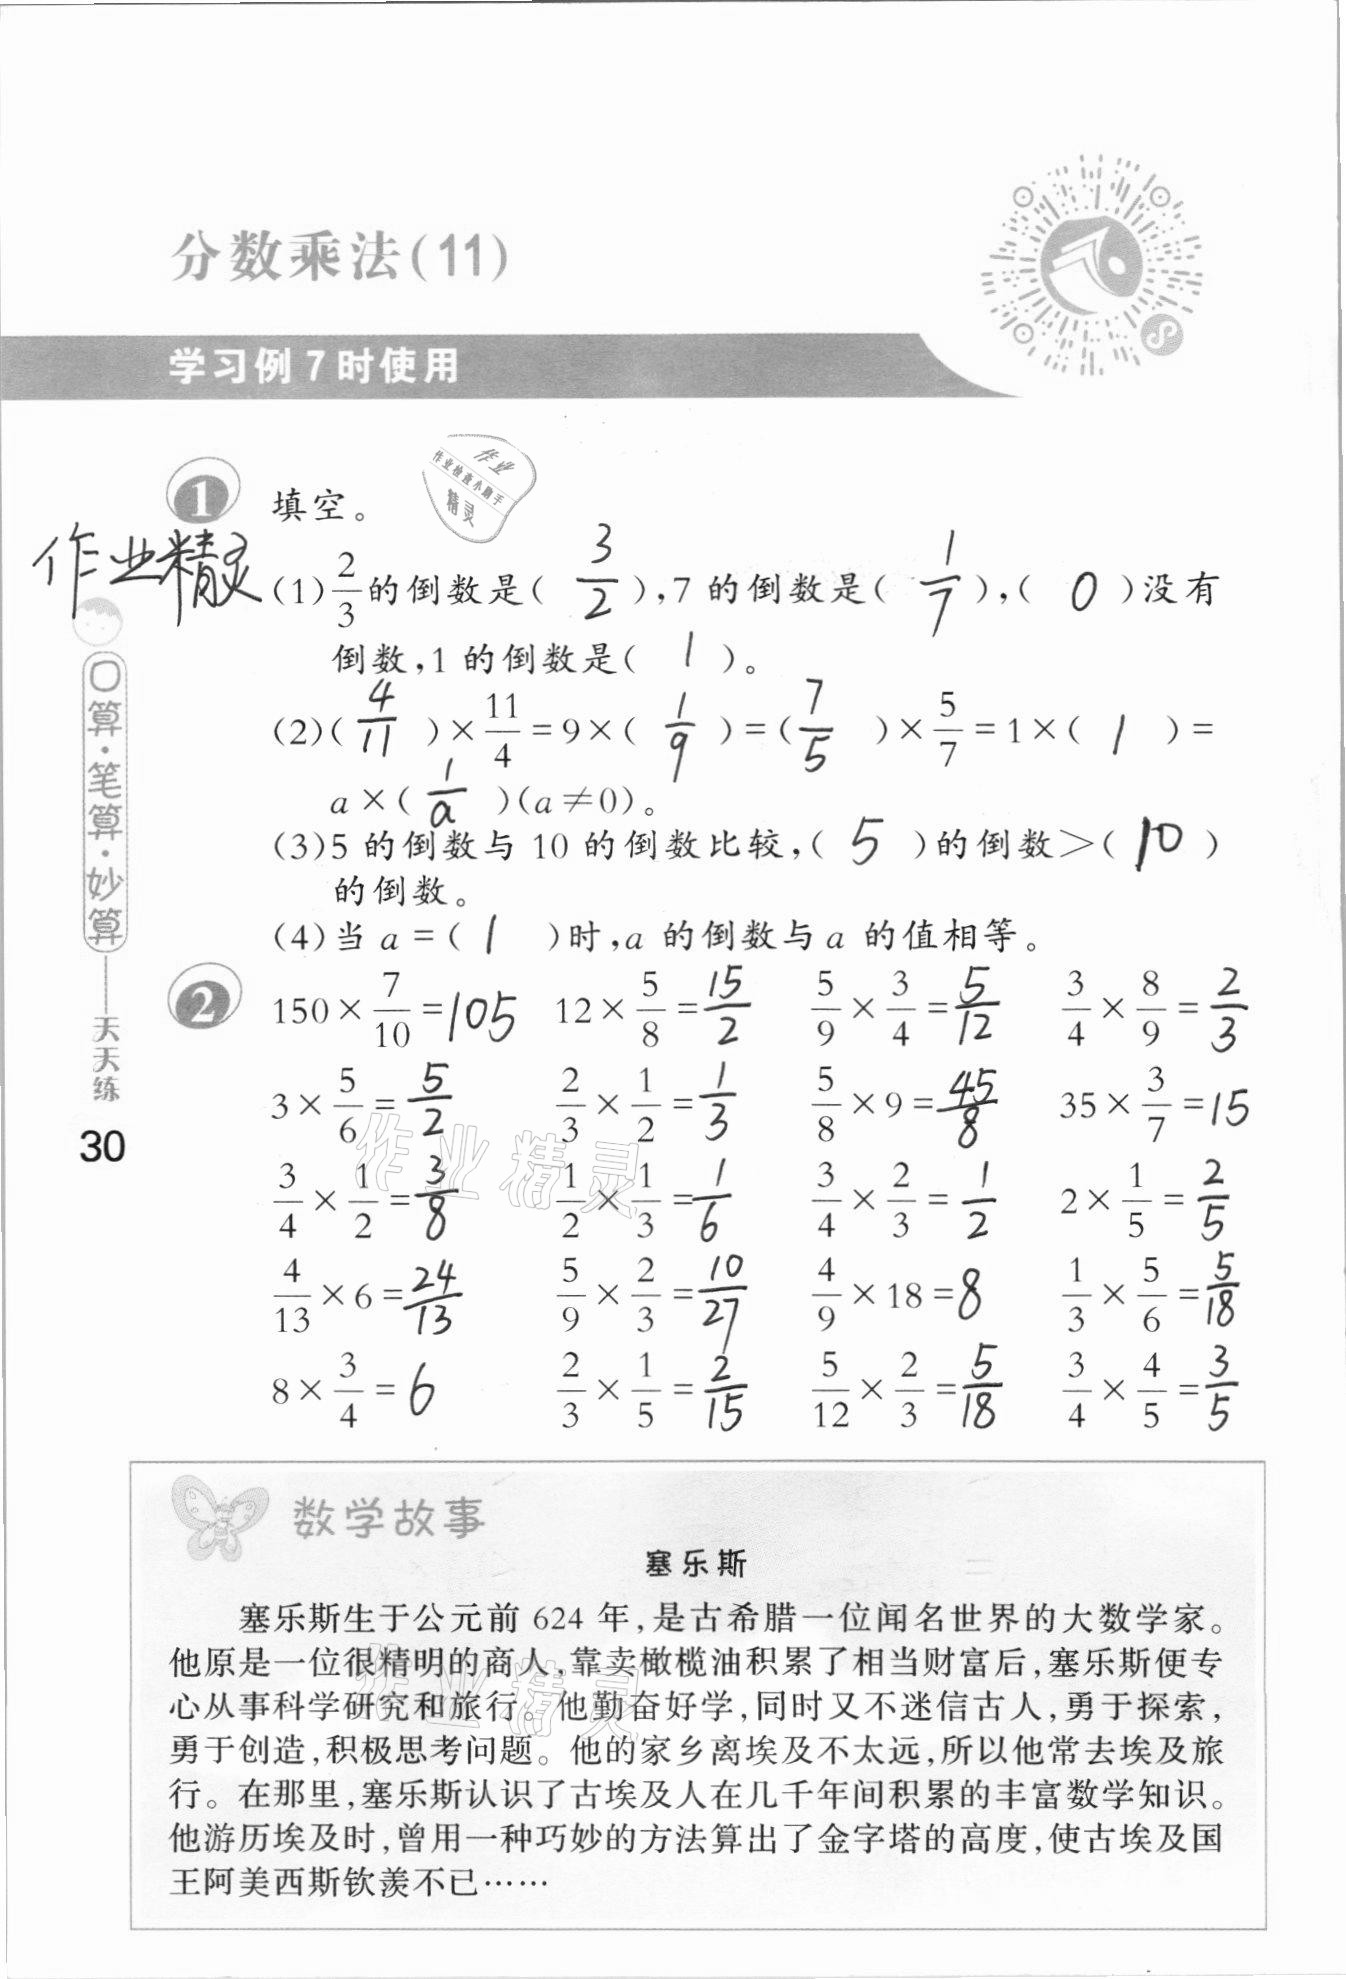 分数乘法(11)
学习例7时使用
作业
作业检查小助手
精灵
1 填空。
作业精灵
(1) 2/3 的倒数是( 3/2 ),7 的倒数是( 1/7 ),( 0 )没有
倒数,1 的倒数是( 1 )。
(2)( 4/11 )× 11/4 = 9×( 1/9 )=( 7/5 )× 5/7 = 1×( 1 )=
a×( 1/a )(a≠0)。
(3)5 的倒数与 10 的倒数比较,( 5 )的倒数>( 10 )
的倒数。
(4)当 a=( 1 )时,a 的倒数与 a 的值相等。
2 150× 7/10 =105 12× 5/8 = 15/2 5/9 × 3/4 = 5/12 3/4 × 8/9 = 2/3
3× 5/6 = 5/2 2/3 × 1/2 = 1/3 5/8 ×9= 45/8 35× 3/7 =15
3/4 × 1/2 = 3/8 1/2 × 1/3 = 1/6 3/4 × 2/3 = 1/2 2× 1/5 = 2/5
4/13 ×6= 24/13 5/9 × 2/3 = 10/27 4/9 ×18=8 1/3 × 5/6 = 5/18
8× 3/4 =6 2/3 × 1/5 = 2/15 5/12 × 2/3 = 5/18 3/4 × 4/5 = 3/5
口算·笔算·妙算——天天练
30
作业精灵
数学故事
塞乐斯
塞乐斯生于公元前 624 年,是古希腊一位闻名世界的大数学家。
他原是一位很精明的商人,靠卖橄榄油积累了相当财富后,塞乐斯便专
心从事科学研究和旅行。他勤奋好学,同时又不迷信古人,勇于探索,
勇于创造,积极思考问题。他的家乡离埃及不太远,所以他常去埃及旅
行。在那里,塞乐斯认识了古埃及人在几千年间积累的丰富数学知识。
他游历埃及时,曾用一种巧妙的方法算出了金字塔的高度,使古埃及国
王阿美西斯钦羡不已……
作业精灵